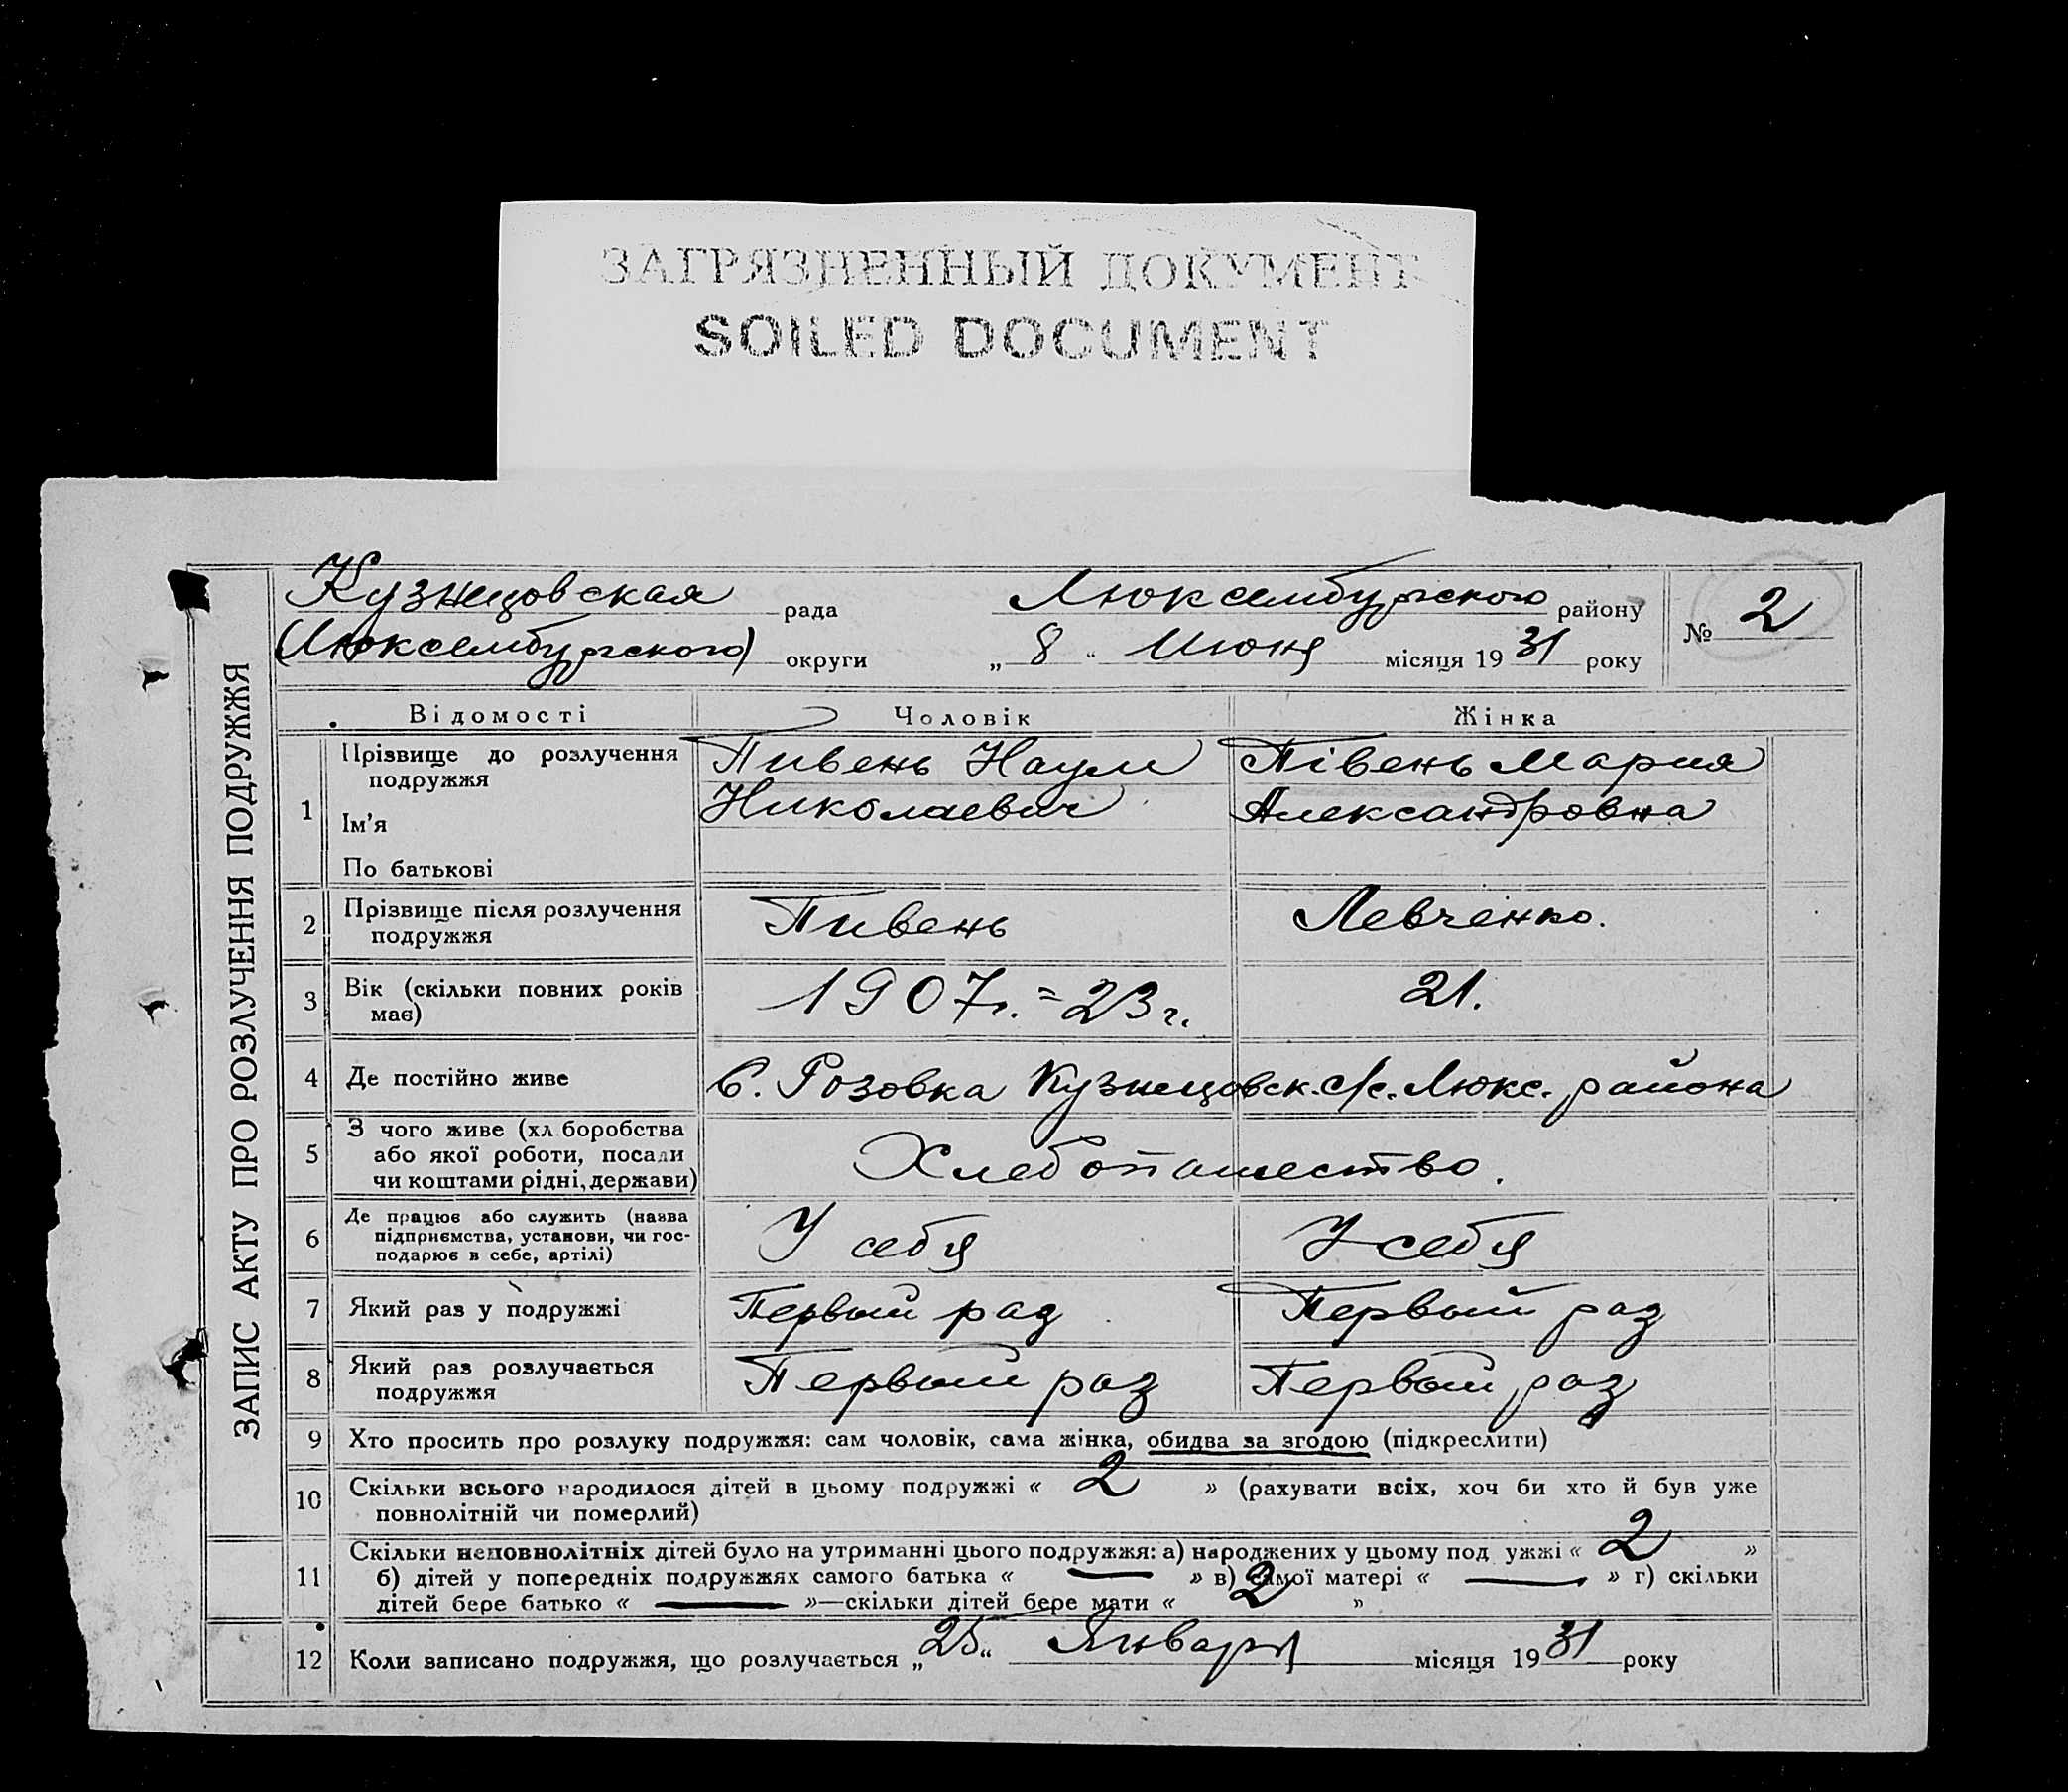 ЗАГРЯЗНЕННЫЙ ДОКУМЕНТ
SOILED DOCUMENT
ЗАПИС АКТУ ПРО РОЗЛУЧЕННЯ ПОДРУЖЖЯ
Кузнецовская рада Люксембургского району № 2
(Люксембургского) округи „ 8 “ Июня місяця 19 31 року
Відомості Чоловік Жінка
1 Прізвище до розлучення подружжя Пивень Наум Півень Мария
Ім'я Николаевич Александровна
По батькові
2 Прізвище після розлучення Пивень Левченко.
подружжя
3 Вік (скільки повних років 1907г. = 23 г. 21.
має)
4 Де постійно живе С. Розовка Кузнецовск. с/с. Люкс. района
5 З чого живе (хл боробства
або якої роботи, посади Хлебопашество.
чи коштами рідні, держави)
6 Де працює або служить (назва
підприємства, установи, чи гос- У себя У себя
подарює в себе, артілі)
7 Який раз у подружжі Первый раз Первый раз
8 Який раз розлучається Первый раз Первый раз
подружжя
9 Хто просить про розлуку подружжя: сам чоловік, сама жінка, обидва за згодою (підкреслити)
10 Скільки всього народилося дітей в цьому подружжі « 2 » (рахувати всіх, хоч би хто й був уже
повнолітній чи померлий)
11 Скільки неповнолітніх дітей було на утриманні цього подружжя: а) народжених у цьому под ужжі « 2 »
б) дітей у попередніх подружжях самого батька « — » в) самої матері « — » г) скільки
дітей бере батько « — »—скільки дітей бере мати « 2 »
12 Коли записано подружжя, що розлучається „ 25 “ Января місяця 19 31 року